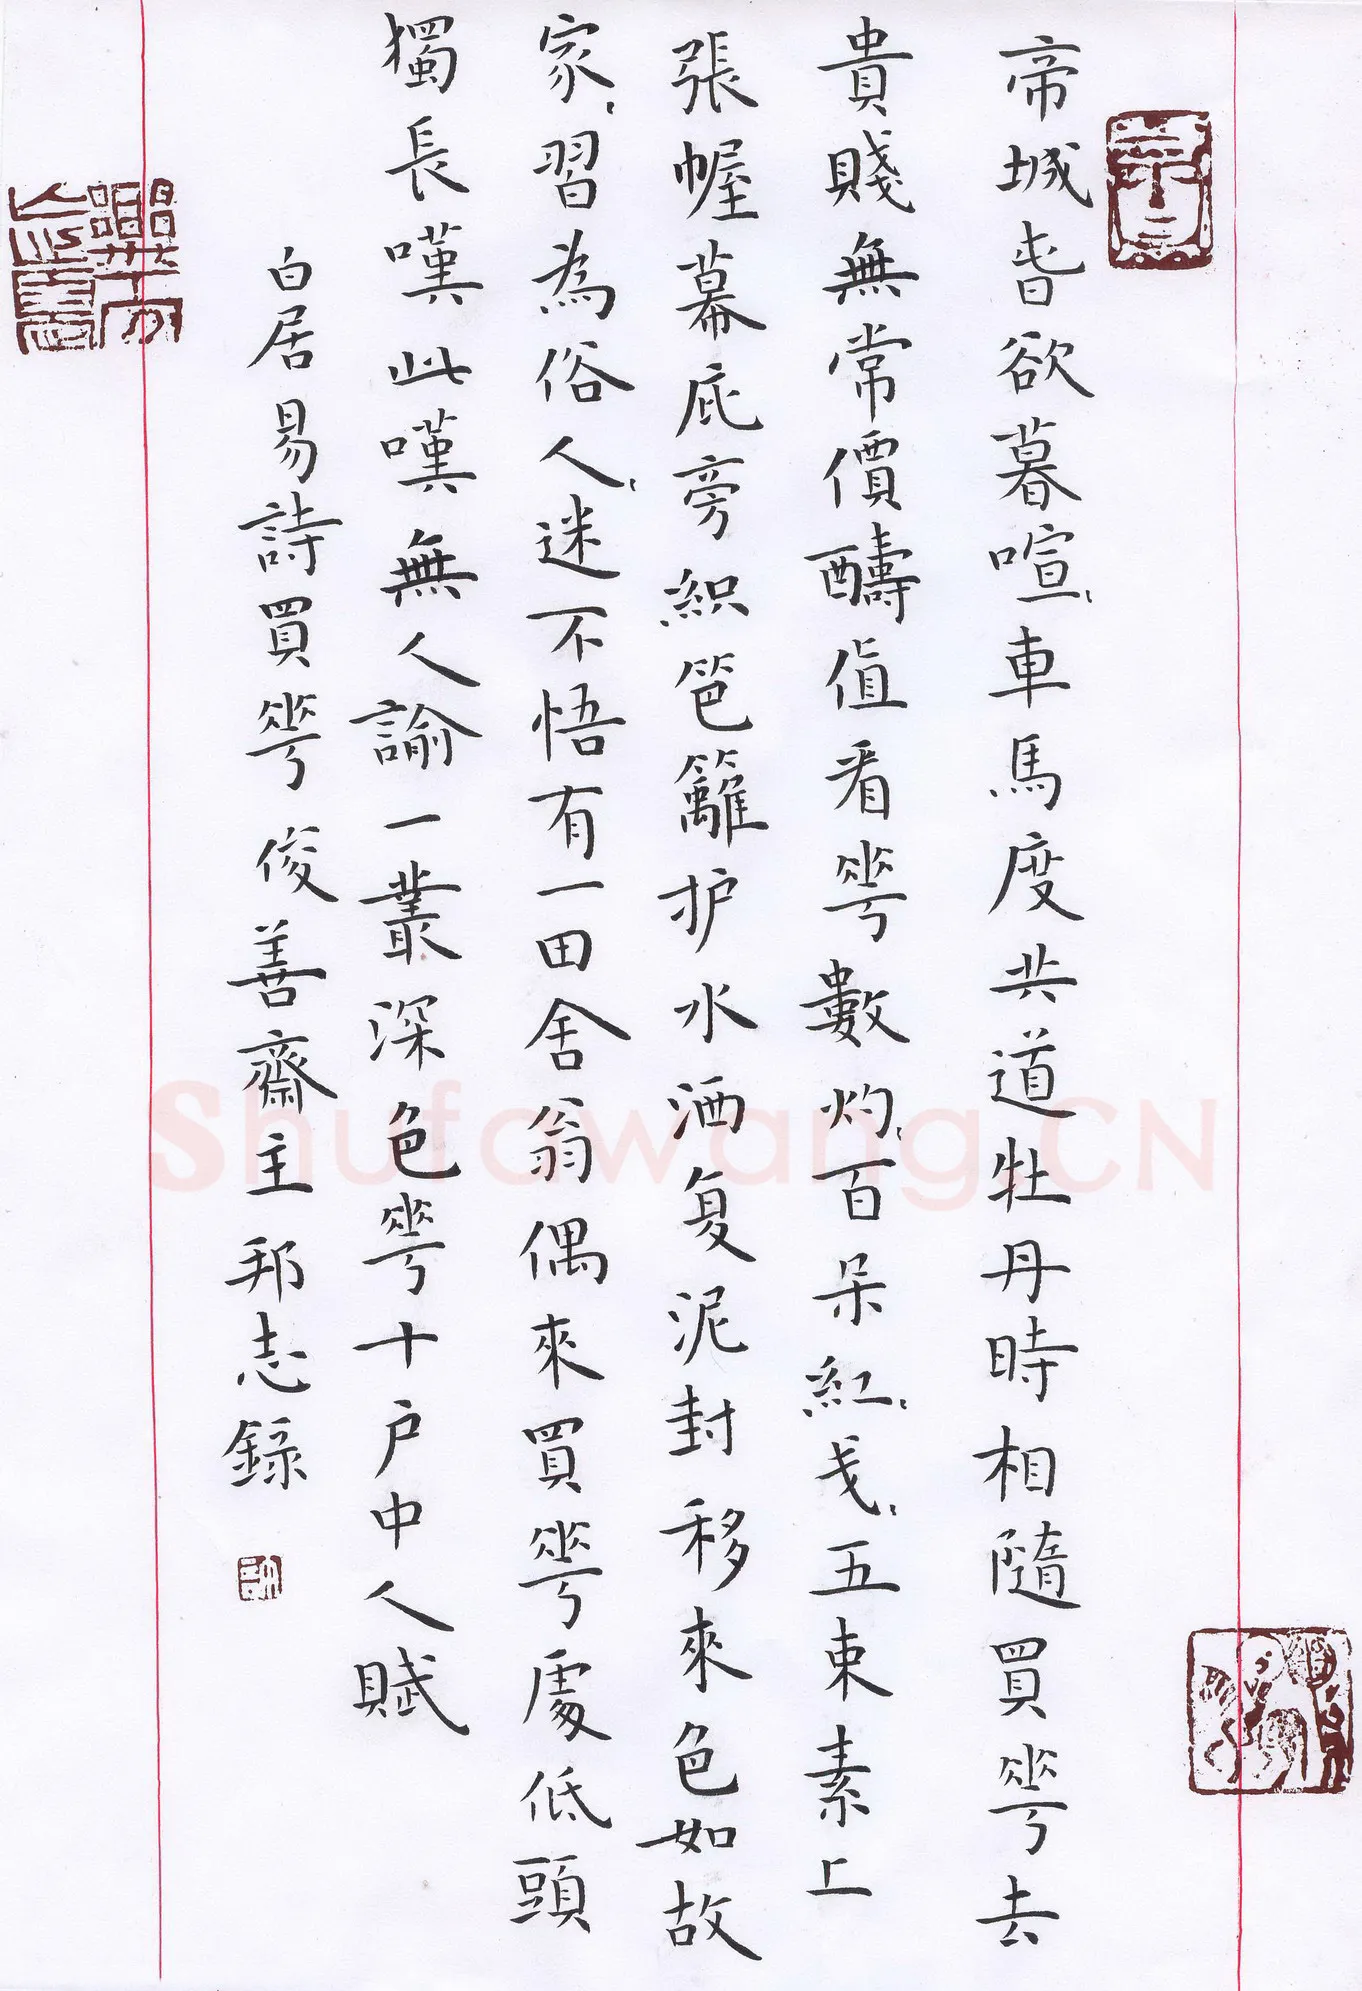 帝城旾欲暮喧〻車馬度共道牡丹時相隨買𠌶去
貴賤無常價醻值看𠌶數灼〻百朵紅戋〻五束素上
張幄幕庇旁織笆籬护水洒复泥封移來色如故
家〻習為俗人〻迷不悟有一田舍翁偶來買𠌶處低頭
獨長嘆此嘆無人諭一叢深色𠌶十户中人賦
白居易詩買𠌶 俊善齋主邦志錄
Shufawang.CN